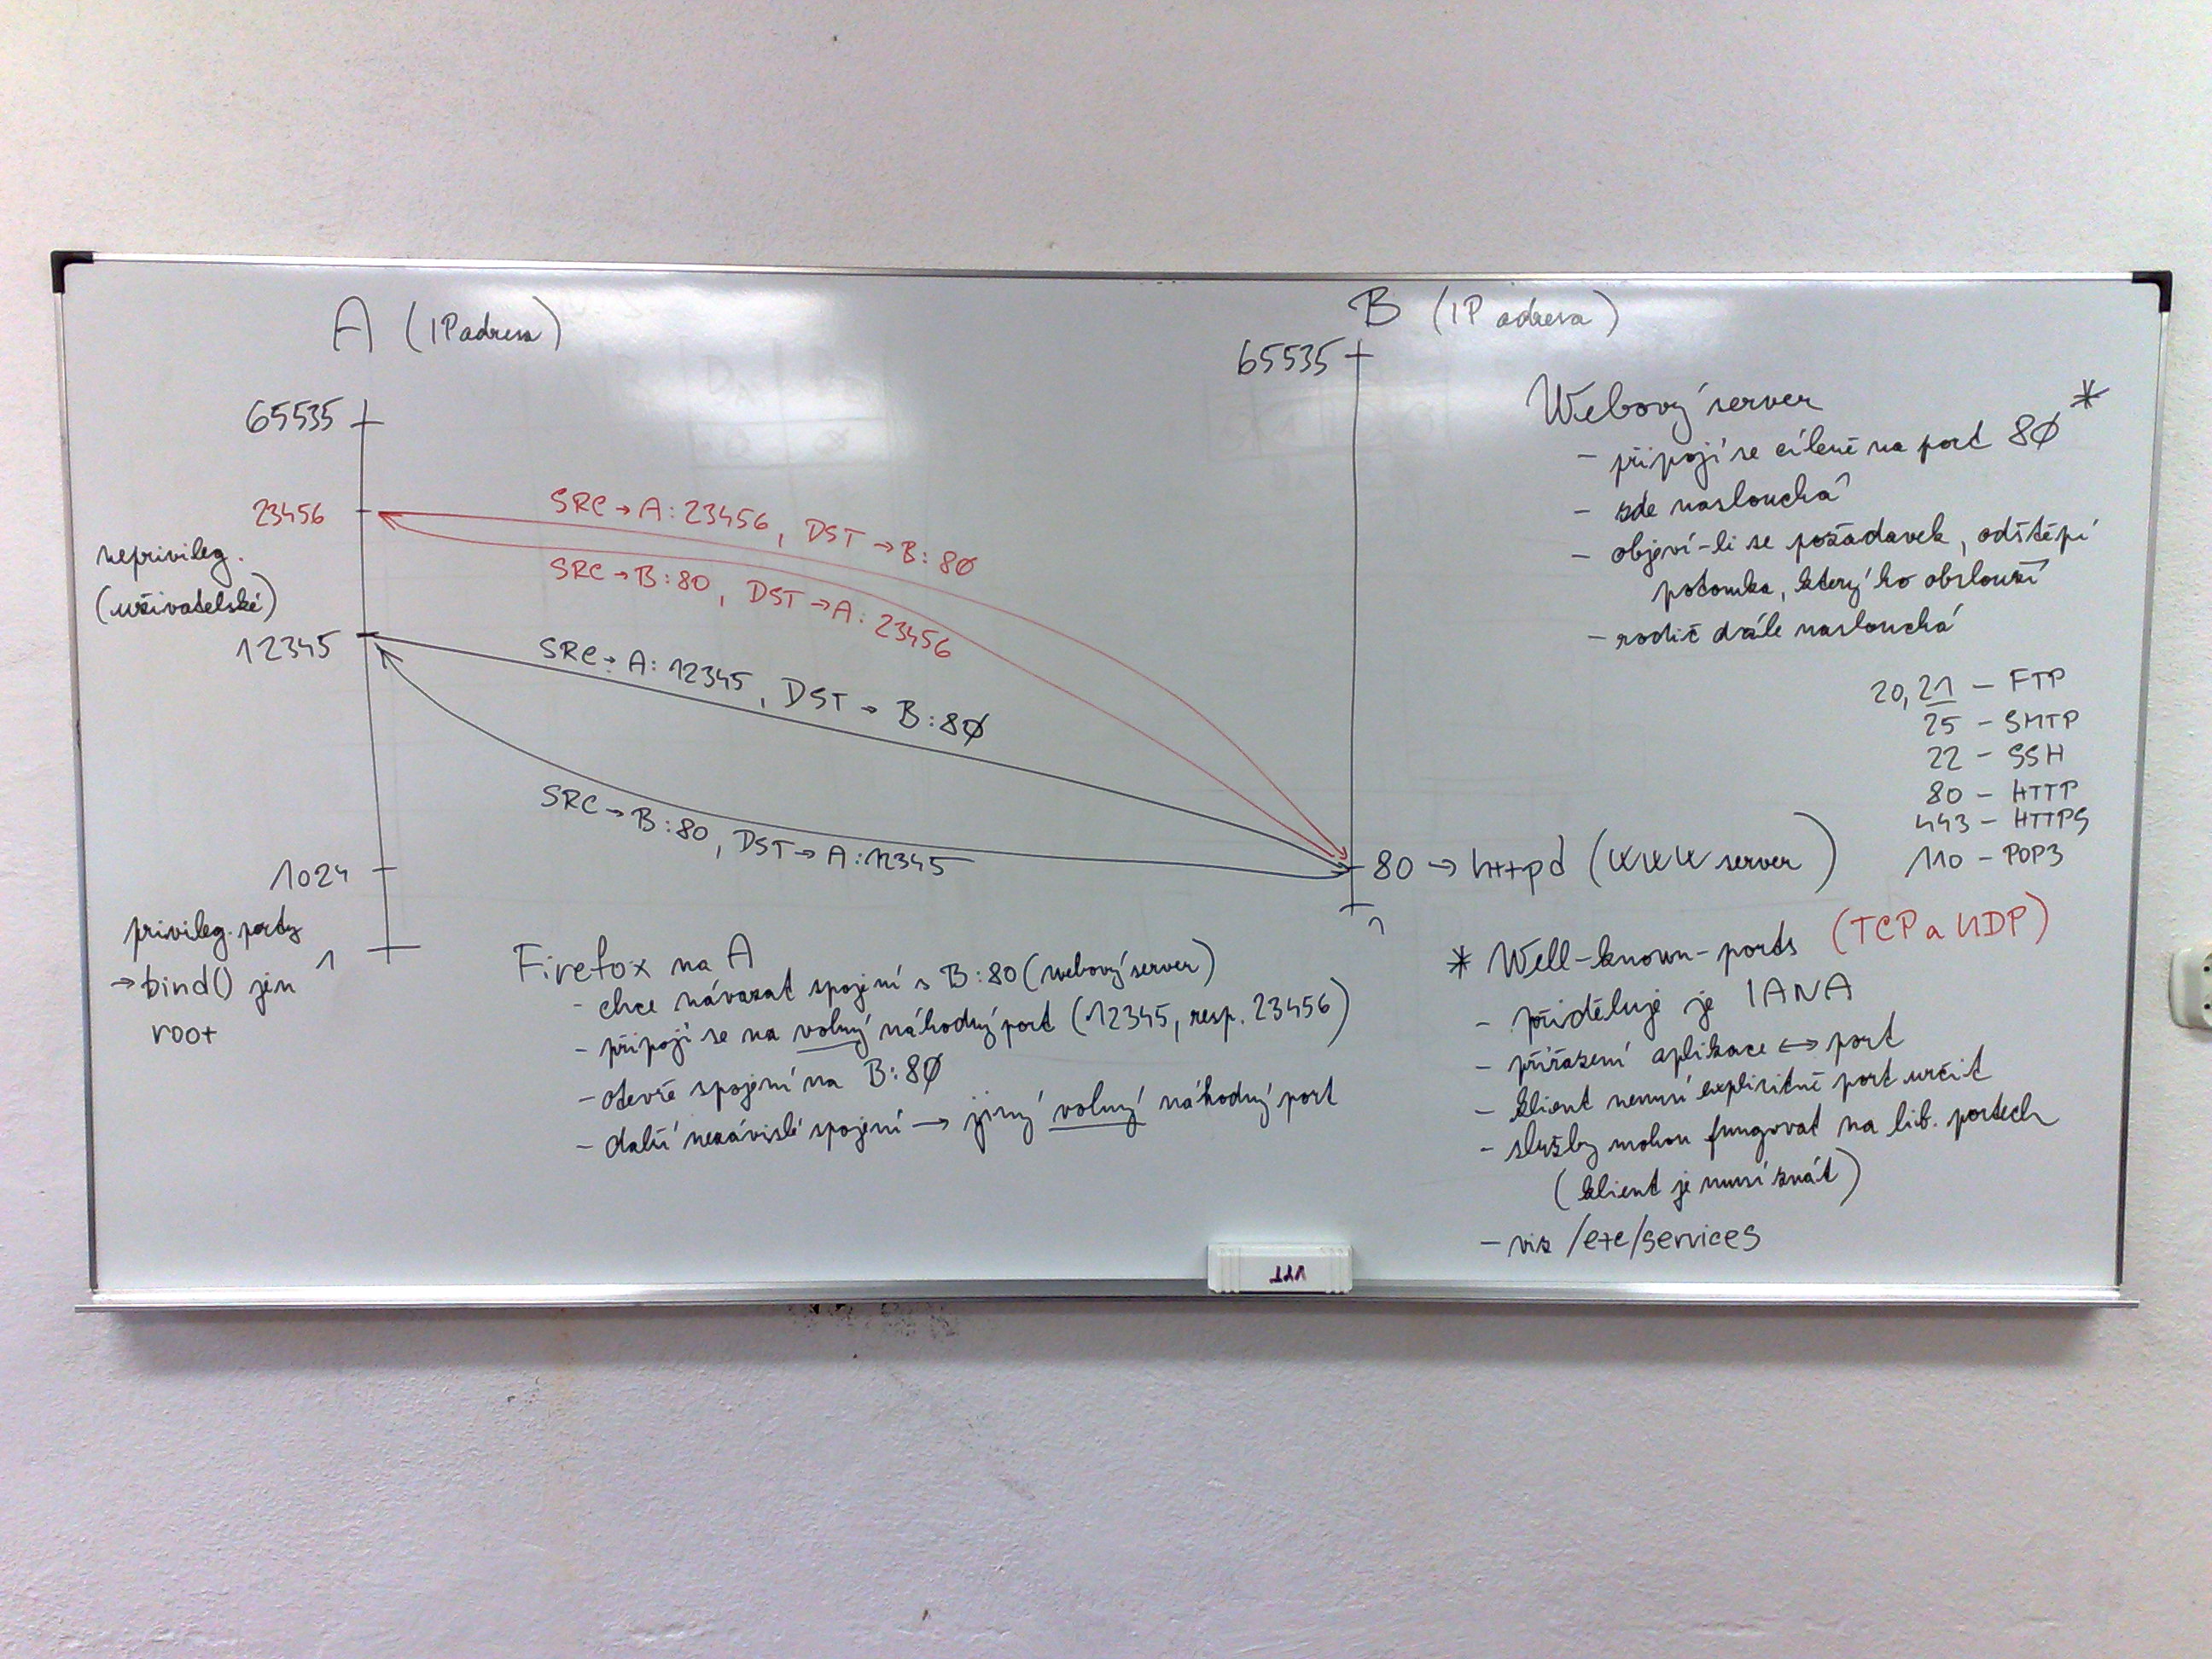 A (IP adresa)
65535
23456
neprivileg.
(uživatelské)
12345
1024
privileg. porty
→ bind() jen
root
1
SRC → A: 23456, DST → B: 80
SRC → B: 80, DST → A: 23456
SRC → A: 12345, DST → B: 80
SRC → B: 80, DST → A: 12345
B (IP adresa)
65535
80 → httpd (WWW server)
1
Firefox na A
- chce návazat spojení s B:80 (webový server)
- připojí se na volný náhodný port (12345, resp. 23456)
- otevře spojení na B:80
- další nezávislé spojení → jiný volný náhodný port
Webový server
- připojí se cíleně na port 80 *
- zde naslouchá
- objeví-li se požadavek, odštěpí
potomka, který ho obslouží
- rodič dále naslouchá
20, 21 - FTP
25 - SMTP
22 - SSH
80 - HTTP
443 - HTTPS
110 - POP3
* Well-known-ports (TCP a UDP)
- přiděluje je IANA
- přiřazení aplikace ↔ port
- klient nemusí explicitně port určit
- služby mohou fungovat na lib. portech
(klient je musí znát)
- viz /etc/services